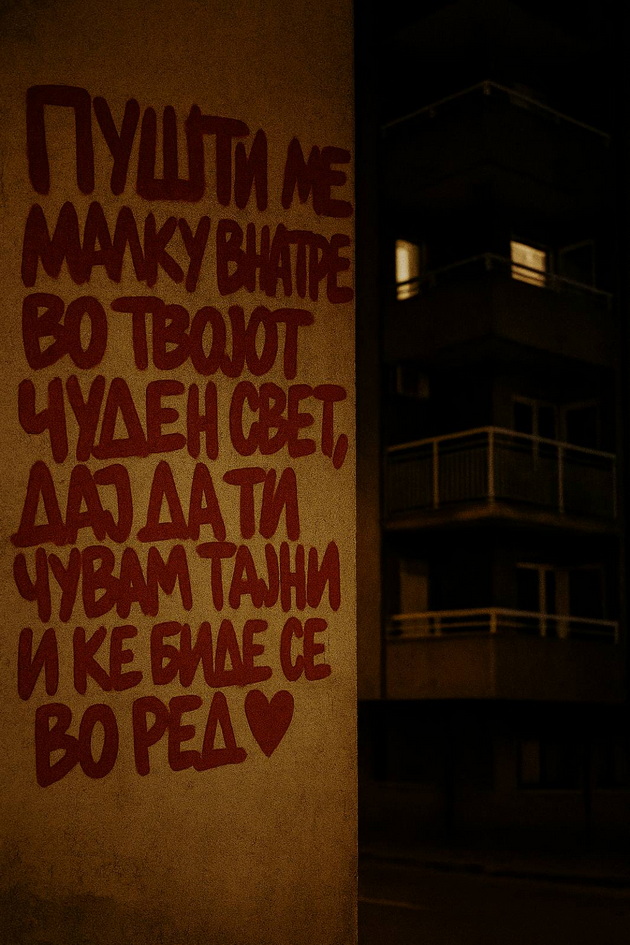 ПУШТИ МЕ
МАЛКУ ВНАТРЕ
ВО ТВОЈОТ
ЧУДЕН СВЕТ,
ДАЈ ДА ТИ
ЧУВАМ ТАЈНИ
И КЕ БИДЕ СЕ
ВО РЕД♥